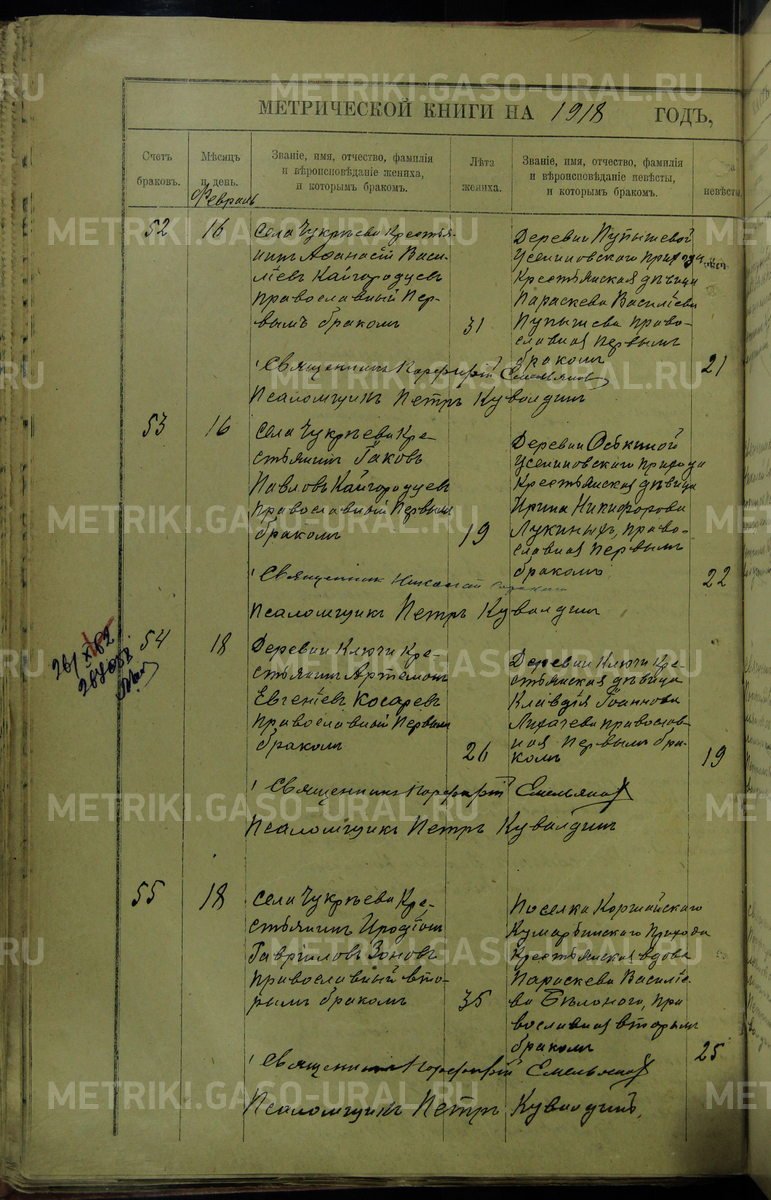 МЕТРИЧЕСКОЙ КНИГИ НА 1918 ГОДЪ,
Счетъ браковъ.
Мѣсяцъ и день.
Званіе, имя, отчество, фамилія и вѣроисповѣданіе жениха, и которымъ бракомъ.
Лѣта жениха.
Званіе, имя, отчество, фамилія и вѣроисповѣданіе невѣсты, и которымъ бракомъ.
невѣсты
Февраль
52
16
Села Чукрѣева Крестья-
нинъ Афанасій Васи-
ліевъ Кайгородцевъ
православный Пер-
вымъ бракомъ
31
Деревни Пупышевой
Усениновскаго прихода
Крестьянская дѣвица
Параскева Василіева
Пупышева право-
славная первымъ
бракомъ
21
Священникъ Порфирій Емельяновъ
Псаломщикъ Петръ Кувалдинъ
53
16
Села Чукрѣева Кре-
стьянинъ Іаковъ
Павловъ Кайгородцевъ
православный Первымъ
бракомъ
19
Деревни Оськиной
Усениновскаго прихода
Крестьянская дѣвица
Ирина Никифорова
Лукиныхъ, право-
славная первымъ
бракомъ
22
Священник Николай
Псаломщикъ Петръ Кувалдинъ
54
18
Деревни Ключи Кре-
стьянинъ Артемонъ
Евгеніевъ Косаревъ
православный Первымъ
бракомъ
26
Деревни Ключи Кре-
стьянская дѣвица
Клавдія Іоаннова
Лихачева православ
ная первымъ бра-
комъ
19
Священникъ Порфирій Емельяновъ
Псаломщикъ Петръ Кувалдинъ
55
18
Села Чукрѣева Кре-
стьянинъ Иродіонъ
Гавріиловъ Зоновъ
православный вто-
рымъ бракомъ
35
Поселка
Прихода
Крестьянская вдова
Параскева Василіе-
ва Бѣлоного, пра
вославная вторымъ
бракомъ
25
Священникъ Порфирій Емельяновъ
Псаломщикъ Петръ Кувалдинъ,
METRIKI.GASO-URAL.RU